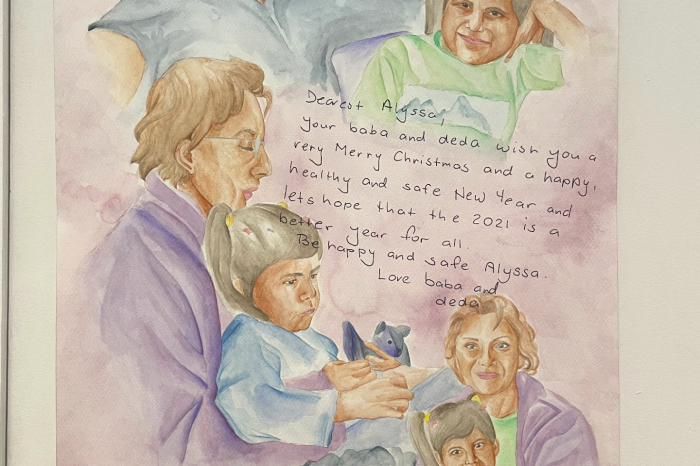 Dearest Alyssa,
your baba and deda wish you a
very Merry Christmas and a happy,
healthy and safe New Year and
lets hope that the 2021 is a
better year for all.
Be happy and safe Alyssa.
Love baba and
deda